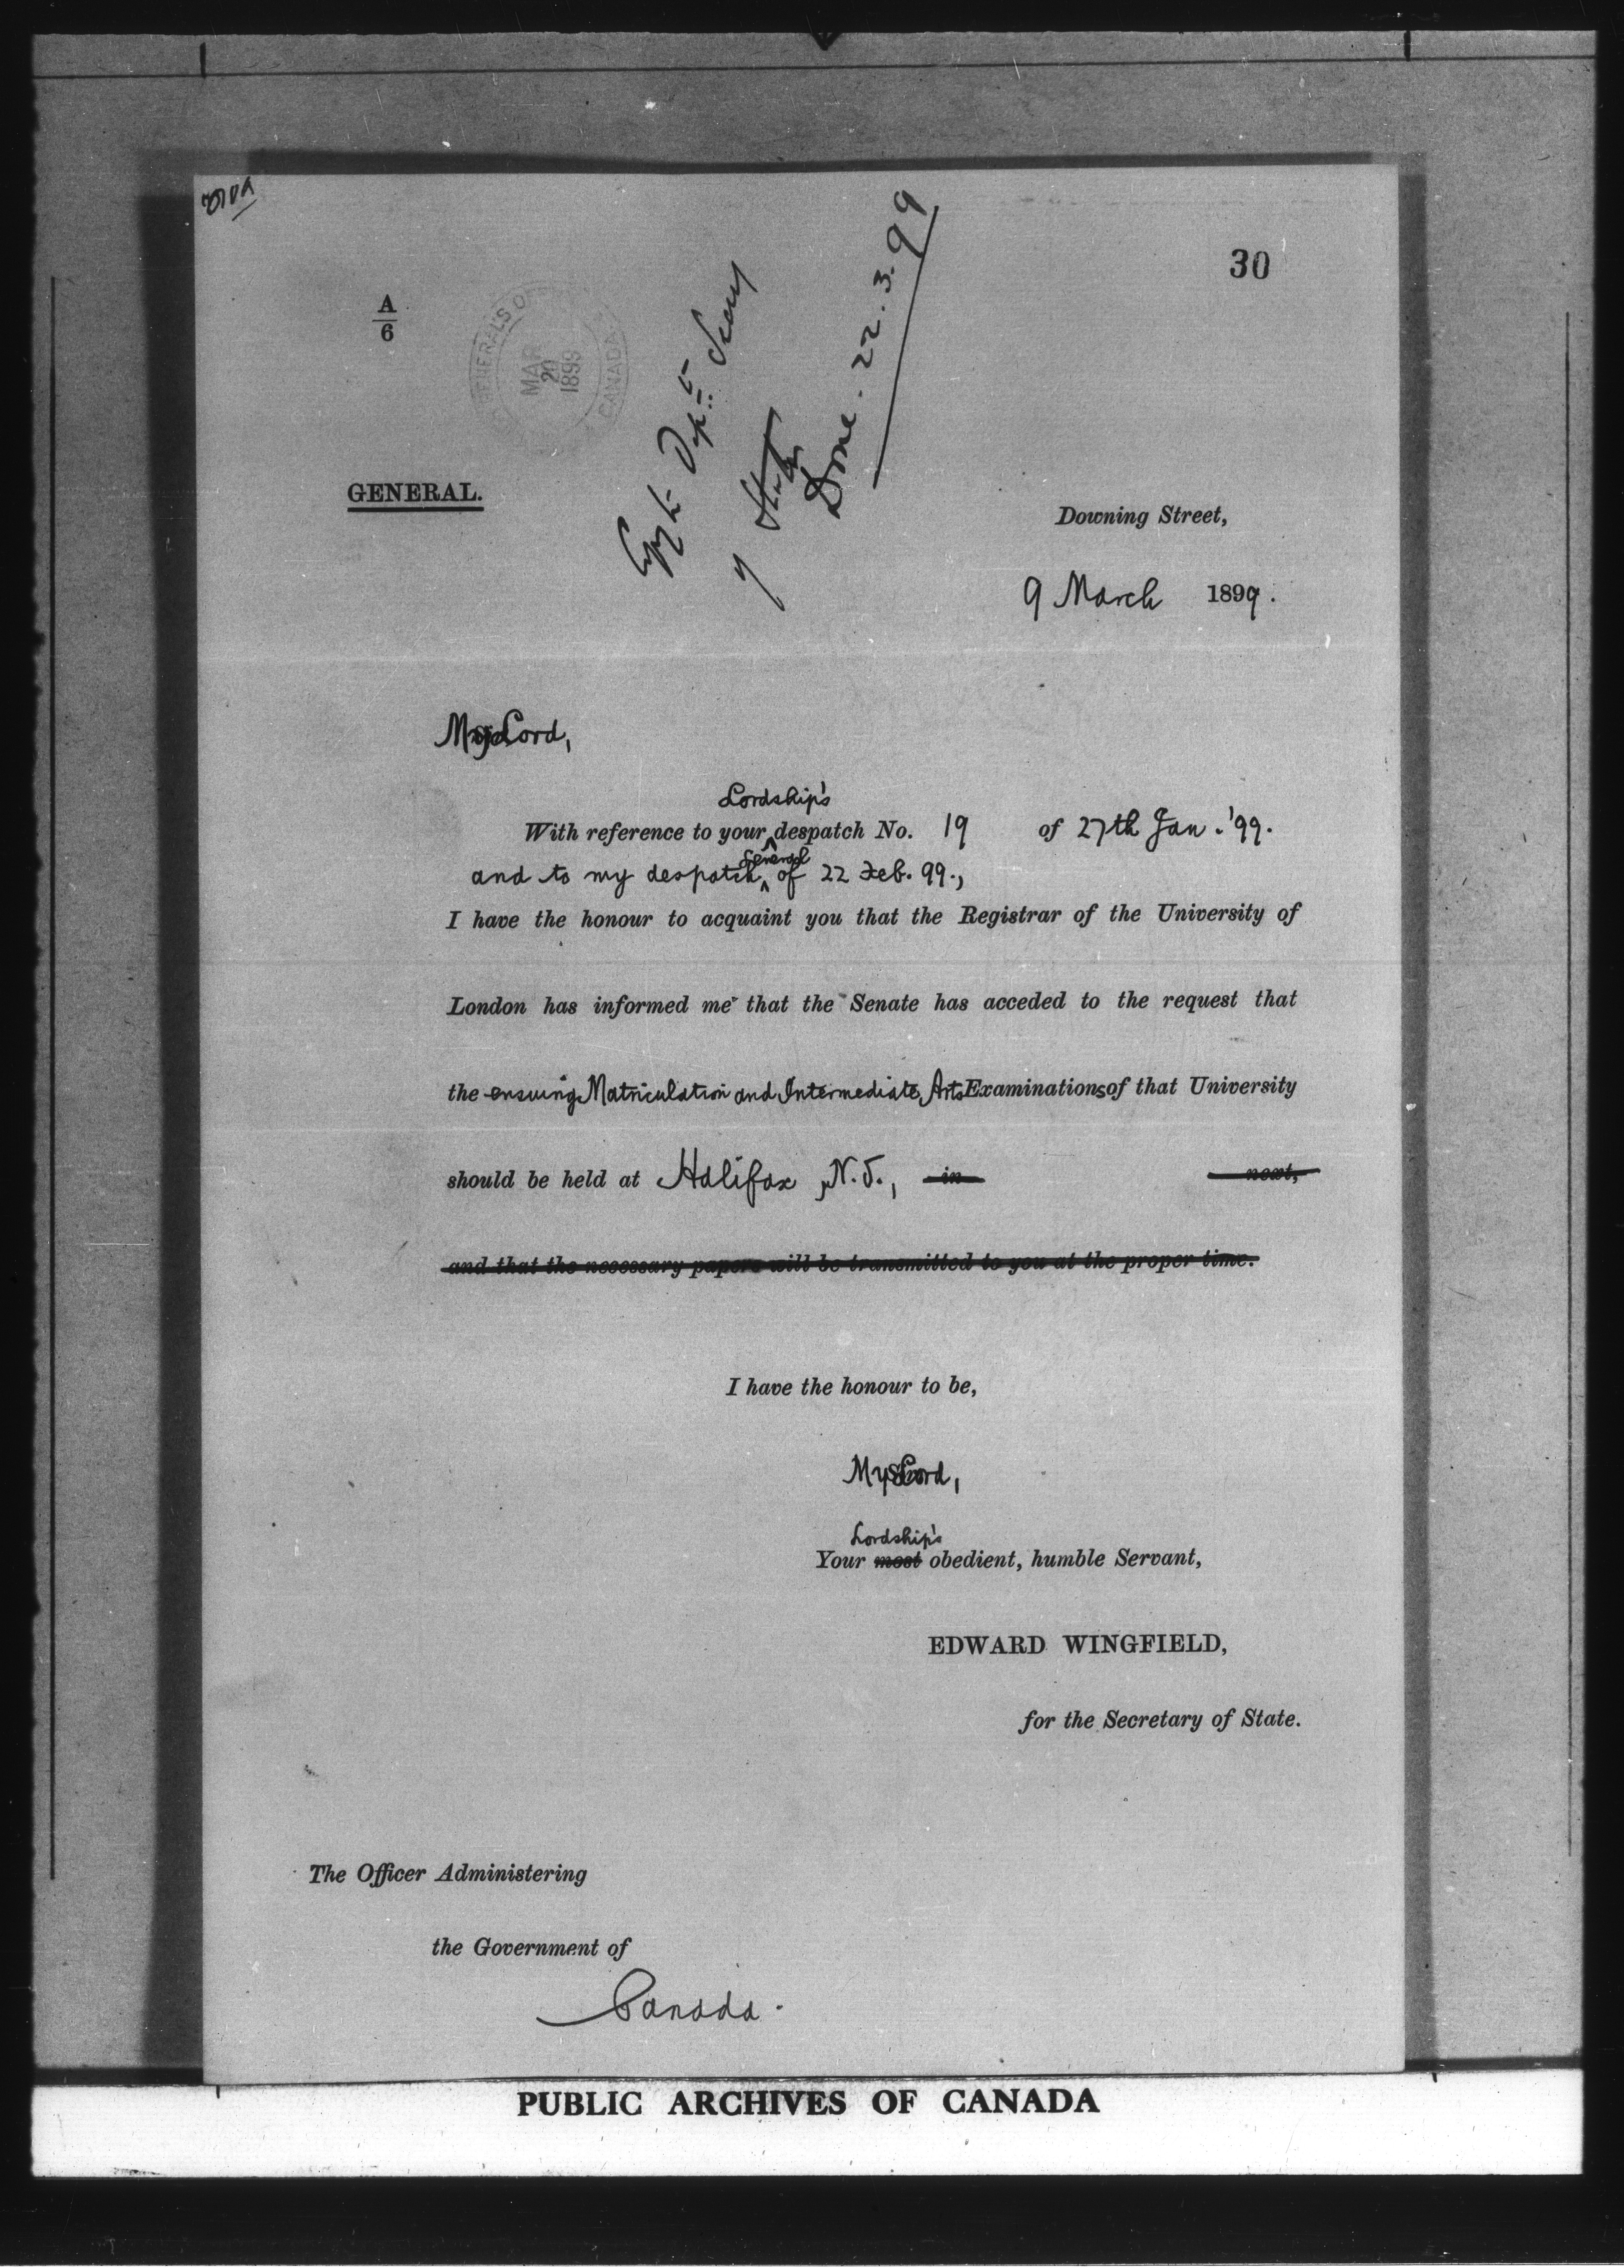 30
A
6
GENERAL'S O
MAR
20
1899
CANADA
Copy to Dep.tt Secy
of State
Done. 22.3.99
GENERAL.
Downing Street,
9 March 1899.
My Lord,
Lordship's
With reference to your ^ despatch No. 19 of 27th Jan. '99.
General
and to my despatch ^ of 22 Feb. 99.,
I have the honour to acquaint you that the Registrar of the University of
London has informed me that the Senate has acceded to the request that
the ensuing Matriculation and Intermediate Arts Examinations of that University
should be held at Halifax, N.S., in next,
and that the necessary papers will be transmitted to you at the proper time.
I have the honour to be,
My Lord,
Lordship's
Your most obedient, humble Servant,
EDWARD WINGFIELD,
for the Secretary of State.
The Officer Administering
the Government of
Canada.
PUBLIC ARCHIVES OF CANADA